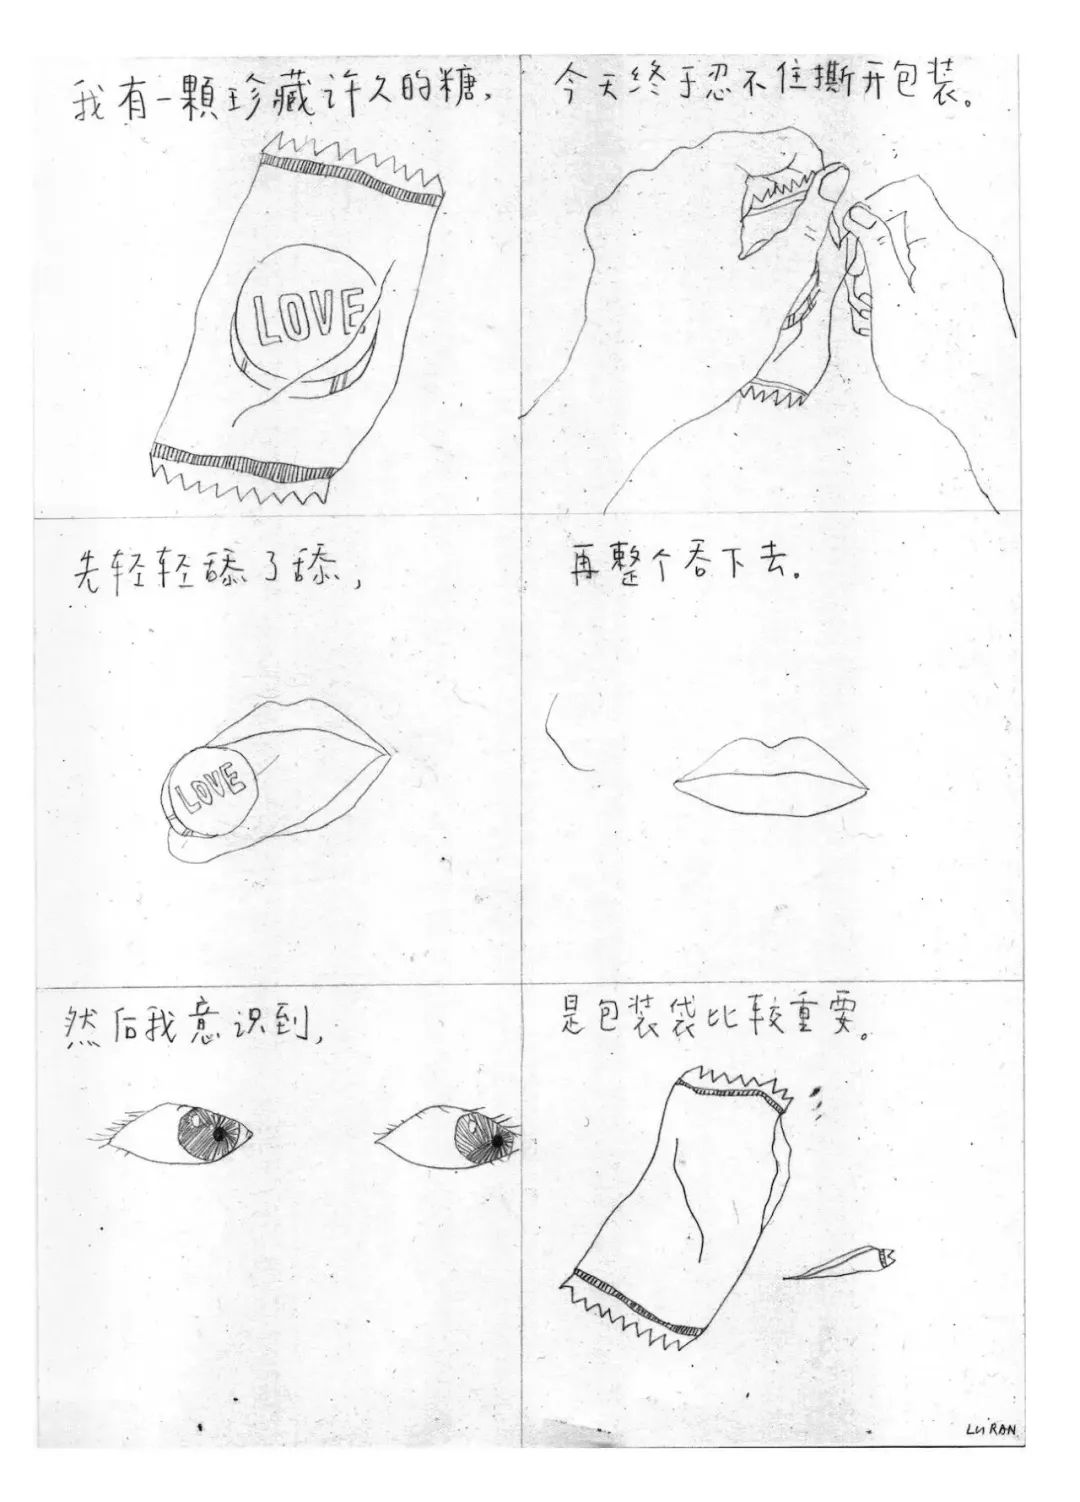 我有一顆珍藏许久的糖，
LOVE
今天终于忍不住撕开包装。
先轻轻舔了舔，
LOVE
再整个吞下去.
然后我意识到，
是包装袋比较重要。
LU RAN